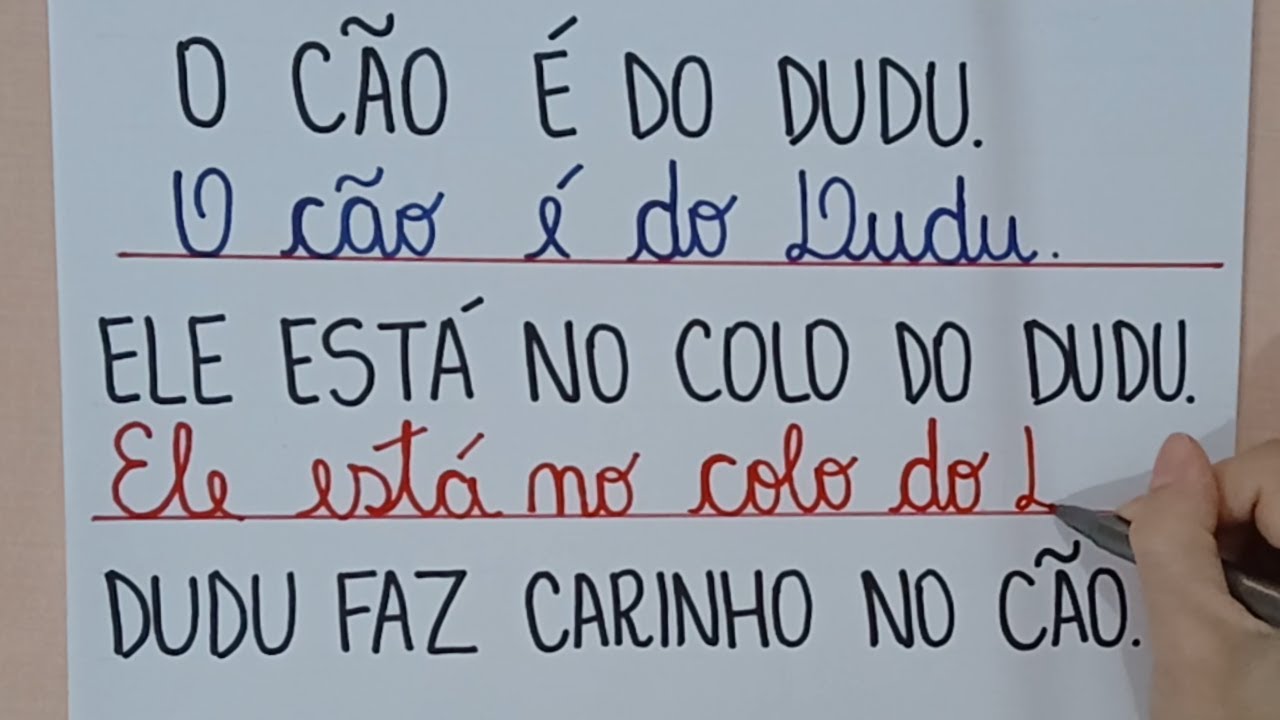 O CÃO É DO DUDU.
O cão é do Dudu.
ELE ESTÁ NO COLO DO DUDU.
Ele está no colo do
DUDU FAZ CARINHO NO CÃO.